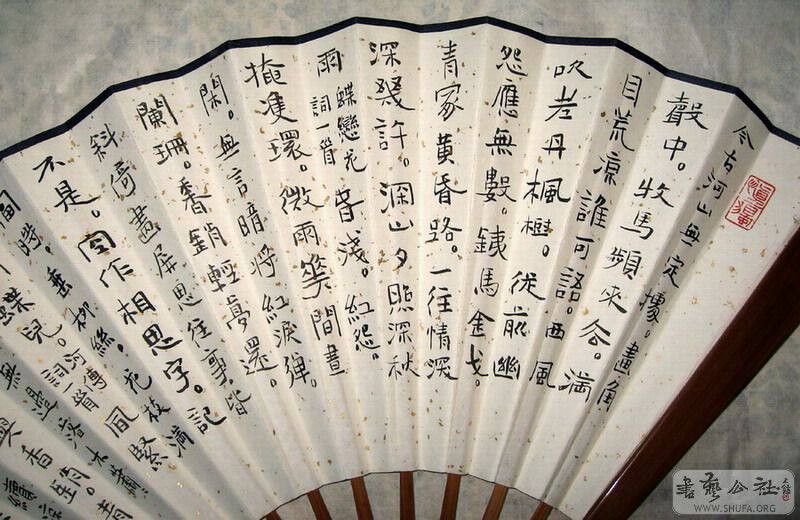 今古河山無定據。畫角
聲中。牧馬頻來去。滿
目荒涼誰可語。西風
吹老丹楓樹。從前幽
怨應無數。鐵馬金戈。
青冢黃昏路。一往情深
深幾許。深山夕照深秋
雨 蝶戀花詞一首 春淺。紅怨。
掩雙環。微雨花間晝
閑。無言暗將紅淚彈。
闌珊。香銷輕夢還。
斜倚畫屏思往事皆
不是。空作相思字。記
時。垂柳絲。花枝滿
蝶兒。河傳詞一首 風緊
無邊落木蕭
與香銷。青
書藝公社
WWW.SHUFA.ORG